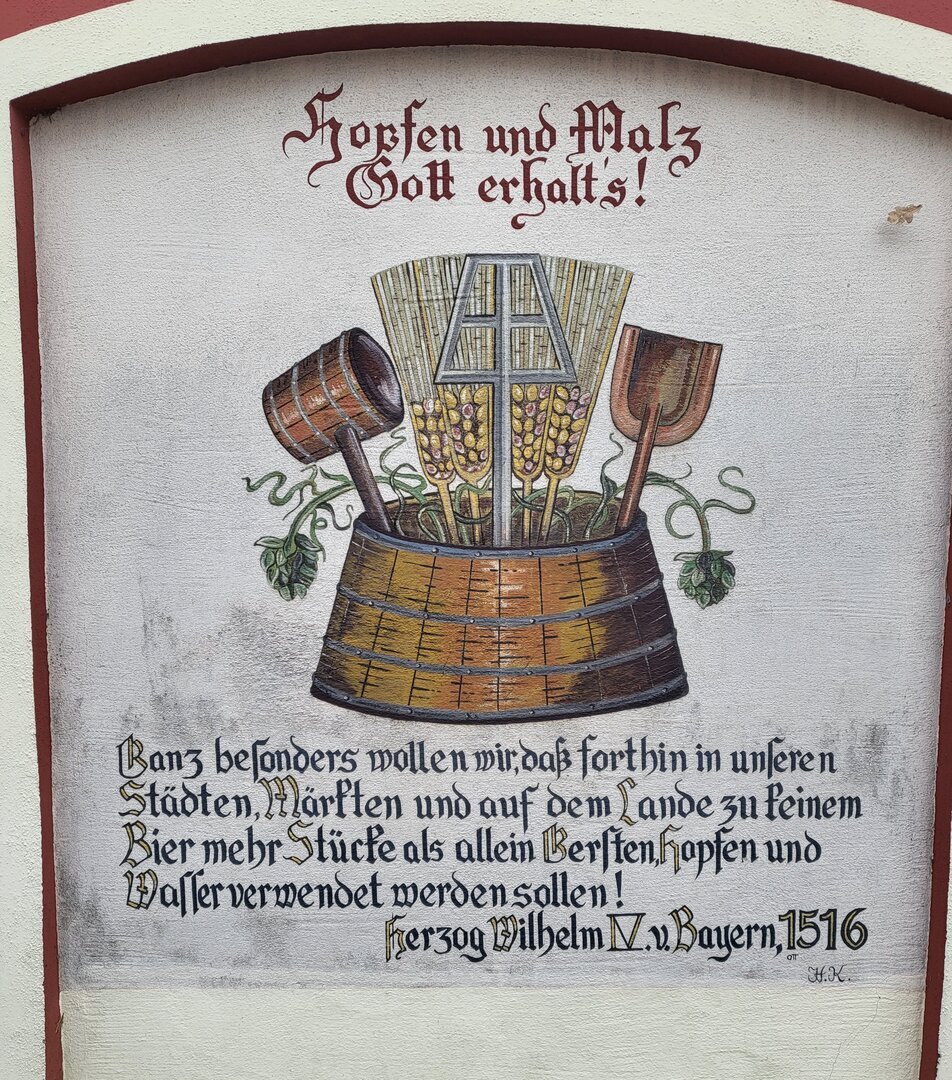 Hopfen und Malz
Gott erhalt's!
Ganz besonders wollen wir, daß forthin in unseren
Städten, Märkten und auf dem Lande zu keinem
Bier mehr Stücke als allein Gersten, Hopfen und
Wasser verwendet werden sollen!
Herzog Wilhelm IV. v. Bayern, 1516
H.K.